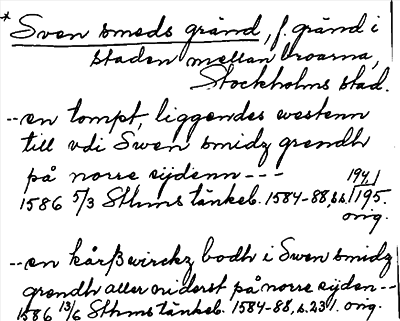 * Sven smeds gränd, f. gränd i
staden mellan broarna,
Stockholms stad.
--en tompt, liggendes westenn
till vdi Swen smidz grendh
på norre sijdenn ---
1586 5/3 Sthms tänkeb. 1584-88, s. 194, 195.
orig.
--en kårßwirckz bodh i Swen smidz
grendh aller niderst på norre sijden--
1586 13/6 Sthms tänkeb. 1584-88, s. 231. orig.